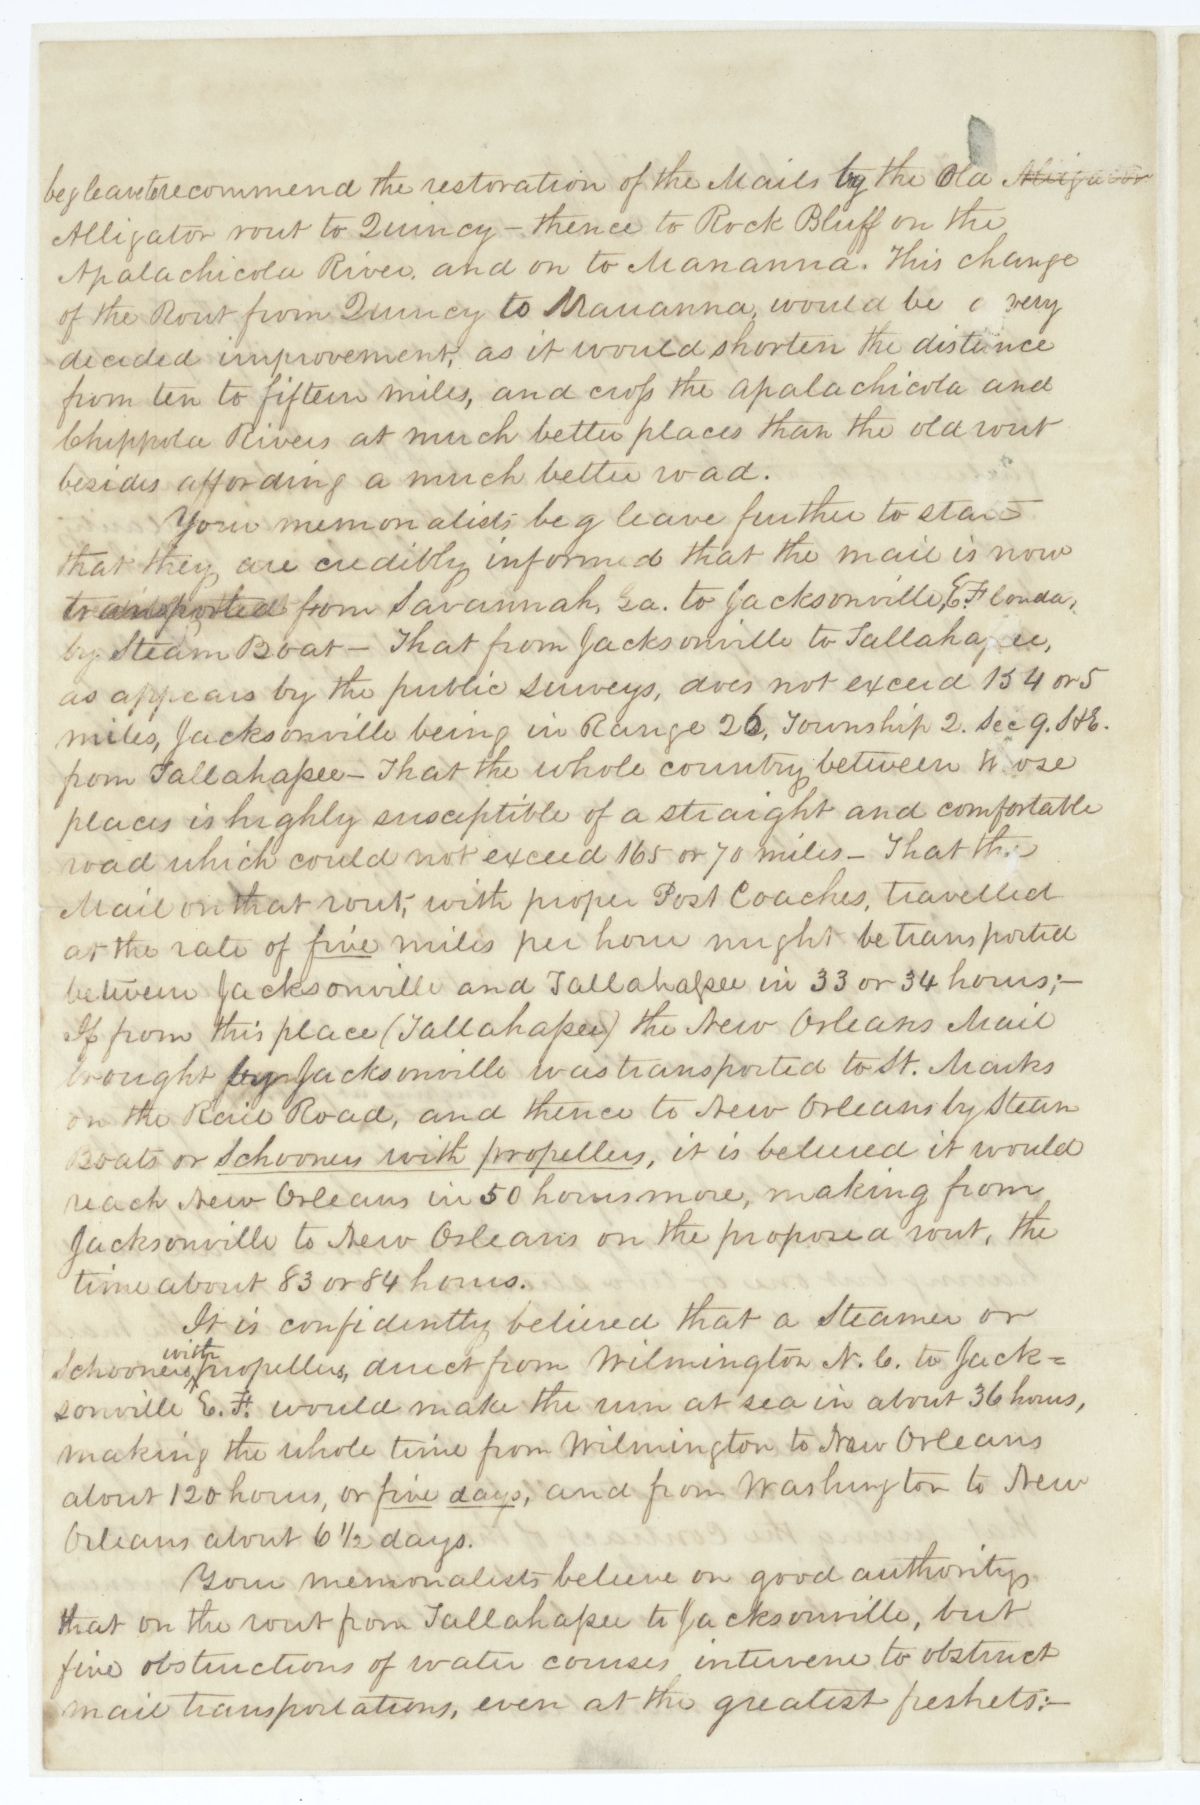 beg leave to recommend the restoration of the Mails by the Old Aligator
Alligator rout to Quincy – thence to Rock Bluff on the
Apalachicola River, and on to Marianna. This change
of the Rout from Quincy to Marianna, would be a very
decided improvement, as it would shorten the distance
from ten to fifteen miles, and cross the Apalachicola and
Chippola Rivers at much better places than the old rout
besides affording a much better road.
Your memorialists beg leave further to state
that they are credibly informed that the mail is now
transported from Savannah, Ga. to Jacksonville, E. Florida,
by Steam Boat – That from Jacksonville to Tallahassee,
as appears by the public surveys, does not exceed 154 or 5
miles, Jacksonville being in Range 26, Township 2. Sec 9. S&E.
from Tallahassee – That the whole country between those
places is highly susceptible of a straight and comfortable
road which could not exceed 165 or 70 miles – That the
Mail on that rout, with proper Post Coaches, travelled
at the rate of five miles per hour might be transported
between Jacksonville and Tallahassee in 33 or 34 hours; –
If from this place (Tallahassee) the New Orleans Mail
brought by Jacksonville was transported to St. Marks
on the Rail Road, and thence to New Orleans by Steam
Boats or Schooners with propellers, it is believed it would
reach New Orleans in 50 hours more, making from
Jacksonville to New Orleans on the proposed rout, the
time about 83 or 84 hours.
It is confidently believed that a Steamer or
Schooners with propellers, direct from Wilmington N. C. to Jack=
sonville E. F. would make the run at sea in about 36 hours,
making the whole time from Wilmington to New Orleans
about 120 hours, or five days, and from Washington to New
Orleans about 6 1/2 days.
Your memorialists believe on good authority
that on the rout from Tallahassee to Jacksonville, but
five obstructions of water courses intervene to obstruct
mail transportations, even at the greatest freshets: –